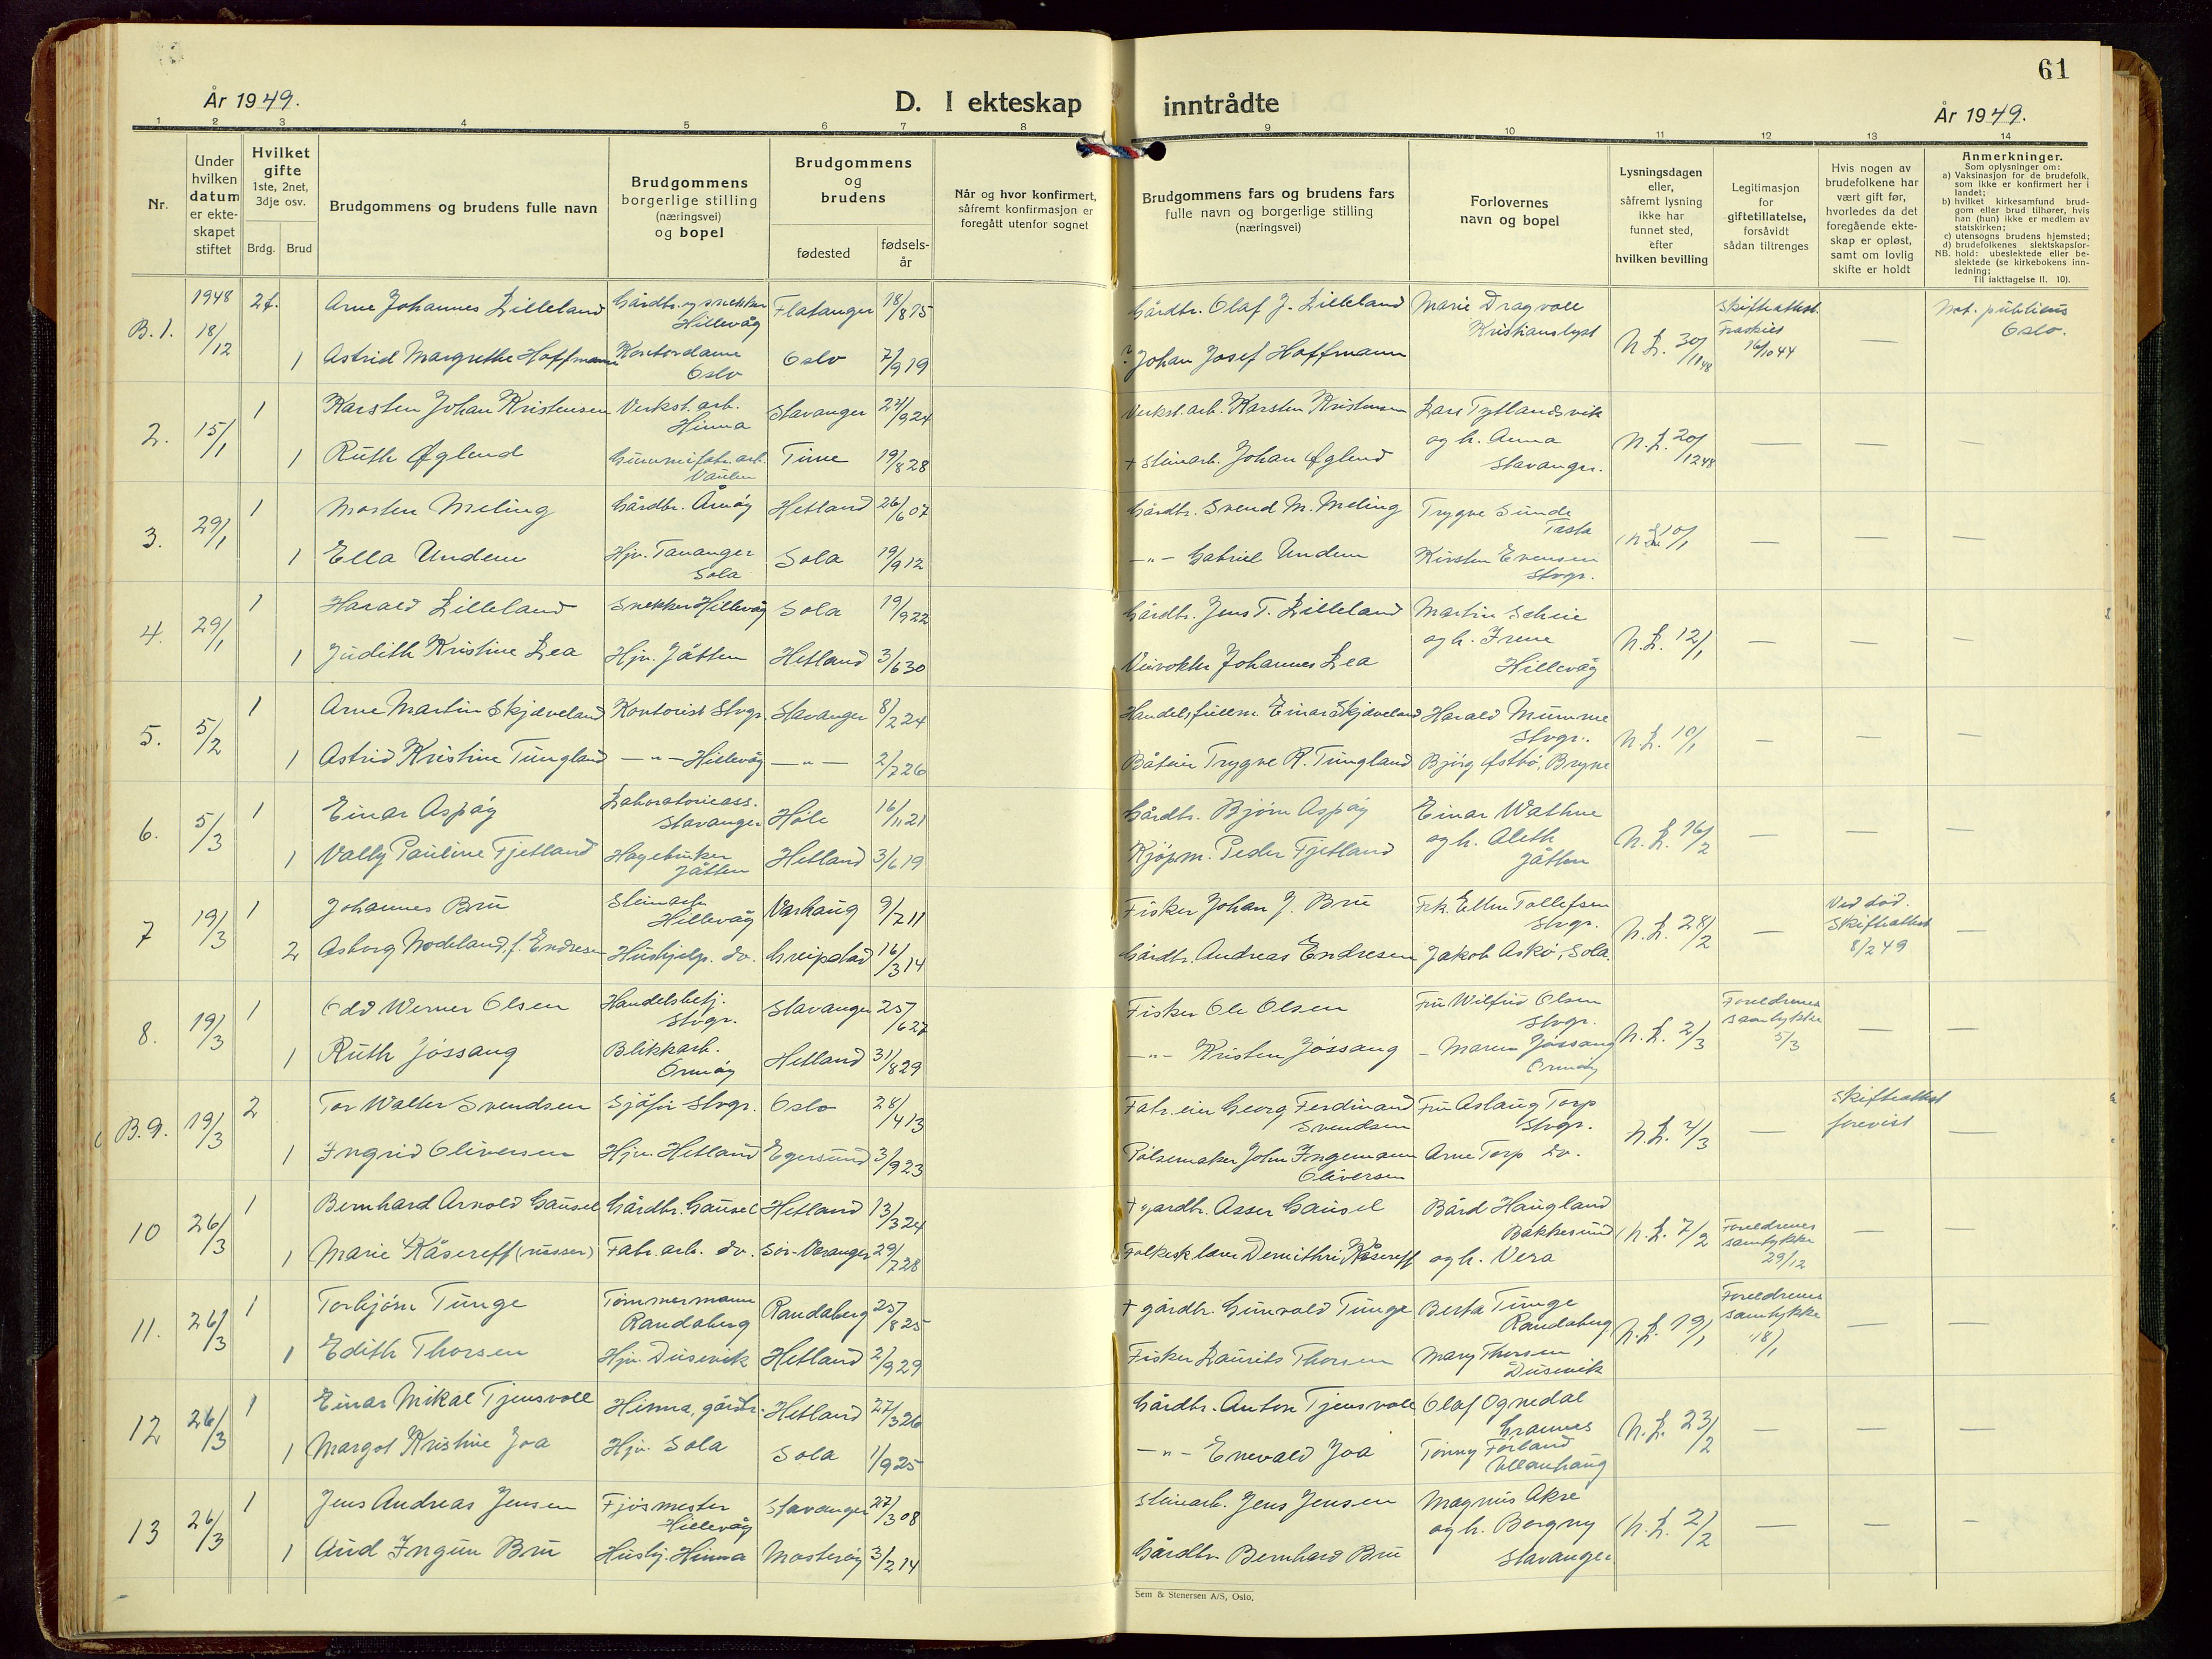 61
År 1949.
D. I ekteskap inntrådte
År 1949.
1 2 3 4 5 6 7 8 9 10 11 12 13 14
Nr.
Under hvilken datum er ekteskapet stiftet
Hvilket gifte 1ste, 2net, 3dje osv.
Brdg. Brud
Brudgommens og brudens fulle navn
Brudgommens borgerlige stilling (næringsvei) og bopel
Brudgommens og brudens
fødested
fødselsår
Når og hvor konfirmert, såfremt konfirmasjon er foregått utenfor sognet
Brudgommens fars og brudens fars fulle navn og borgerlige stilling (næringsvei)
Forlovernes navn og bopel
Lysningsdagen eller, såfremt lysning ikke har funnet sted, efter hvilken bevilling
Legitimasjon for giftetillatelse, forsåvidt sådan tiltrenges
Hvis nogen av brudefolkene har vært gift før, hvorledes da det foregående ekteskap er opløst, samt om lovlig skifte er holdt
Anmerkninger.
Som oplysninger om:
a) Vaksinasjon for de brudefolk, som ikke er konfirmert her i landet;
b) hvilket kirkesamfund brudgom eller brud tilhører, hvis han (hun) ikke er medlem av statskirken;
c) utensogns brudens hjemsted;
d) brudefolkenes slektskapsforhold: ubeslektede eller beslektede (se kirkebokens innledning;
NB. Til iakttagelse II. 10).
B. 1. 1948 18/12 2f. Arne Johannes Lilleland Gårdbr. og snekker Hillevåg Flatanger 18/8 75 Gårdbr. Olaf J. Lilleland Marie Dragvoll Kristianslyst N. L. 30/11 48 Skifteattest 16/10 44 — Not. publicus Oslo.
1 Astrid Margrethe Hoffmann Kontordame Oslo Oslo 7/9 19 ? Johan Josef Hoffmann
2. 15/1 1 Karsten Johan Kristensen Verkst. arb. Hinna Stavanger 24/9 24 Verkst. arb. Karsten Kristensen Lars Tytlandsvik og h. Anna Stavanger. N. L. 20/12 48 — — —
1 Ruth Øglend Gummifabr. arb. Vaulen Time 19/8 28 + Steinarb. Johan Øglend
3. 29/1 1 Morten Meling Gårdbr. Åmøy Hetland 26/6 07 Gårdbr. Svend M. Meling Trygve Sunde Tasta N. L. 10/1 — — —
1 Ella Undem Hjv. Tananger Sola Sola 19/9 12 —"— Gabriel Undem Kirsten Evensen Stvgr.
4. 29/1 1 Harald Lilleland Snekker Hillevåg Sola 19/9 22 Gårdbr. Jens T. Lilleland Martin Scheie og h. Irene Hillevåg N. L. 12/1 — — —
1 Judith Kristine Lea Hjv. Jåtten Hetland 3/6 30 Veivokter Johannes Lea
5. 5/2 1 Arne Martin Skjæveland Kontorist Stvgr. Stavanger 8/2 24 Handelsfullm. Einar Skjæveland Harald Mumme Stvgr. N. L. 19/1 — — —
1 Astrid Kristine Tungland —"— Hillevåg —"— 2/7 26 Båteier Trygve R. Tungland Bjørg Østbø, Bryne
6. 5/3 1 Einar Aspøy Laboratorieass. Stavanger Høle 16/11 21 Gårdbr. Bjørn Aspøy Einar Wathne og h. Aleth Jåtten N. L. 16/2 — — —
1 Vally Pauline Fjetland Hagebruker Jåtten Hetland 3/6 19 Kjøpm. Peder Fjetland
7 19/3 1 Johannes Bru Steinarb. Hillevåg Varhaug 9/7 11 Fisker Johan J. Bru Frk. Ellen Tollefsen Stvgr. N. L. 28/2 — Ved død. Skifteattest 8/2 49 —
2 Asborg Nodeland, f. Endresen Hushjelp. do. Greipstad 16/3 14 Gårdbr. Andreas Endresen Jakob Askø, Sola.
8. 19/3 1 Odd Werner Olsen Handelsbetj. Stvgr. Stavanger 25/6 27 Fisker Ole Olsen Fru Wilfrid Olsen Stvgr. N. L. 2/3 Foreldrenes samtykke 5/3 — —
1 Ruth Jøssang Blikkarb. Ormøy Hetland 31/8 29 —"— Kristen Jøssang — Maren Jøssang Ormøy
B. 9. 19/3 2 Tor Walter Svendsen Sjåfør Stvgr. Oslo 28/4 13 Fabr. eier Georg Ferdinand Svendsen Fru Aslaug Torp Stvgr. N. L. 4/3 — Skifteattest forevist —
1 Ingrid Oliversen Hjv. Hetland Egersund 3/9 23 Pølsemaker John Ingemann Oliversen Arne Torp do.
10 26/3 1 Bernhard Arnold Gausel Gårdbr. Gausel Hetland 13/3 24 + gardbr. Asser Gausel Bård Haugland Bakkesund og h. Vera N. L. 7/2 Foreldrenes samtykke 29/12 — —
1 Marie Kåsereff (russer) Fabr. arb. do. Sør-Varanger 29/7 28 Folkesk. lærer Demithri Kåsereff
11. 26/3 1 Torbjørn Tunge Tømmermann Randaberg Randaberg 25/8 25 + gårdbr. Gunvald Tunge Berta Tunge Randaberg N. L. 19/1 Foreldrenes samtykke 18/1 — —
1 Edith Thorsen Hjv. Dusevik Hetland 2/9 29 Fisker Laurits Thorsen Mary Thorsen Dusevik
12 26/3 1 Einar Mikal Tjensvoll Hinna, gårdbr. Hetland 27/3 26 Gårdbr. Anton Tjensvoll Olaf Ognedal Grannes N. L. 23/2 — — —
1 Margot Kristine Joa Hjv. Sola Sola 1/9 25 —"— Enevald Joa Tønny Førland Ullanhaug
13 26/3 1 Jens Andreas Jensen Fjøsmester Hillevåg Stavanger 27/3 08 Steinarb. Jens Jensen Magnus Akre og h. Borgny Stavanger N. L. 2/2 — — —
1 Aud Ingun Bru Hushj. Hinna Mosterøy 3/2 14 Gårdbr. Bernhard Bru
Sem & Stenersen A/S, Oslo.